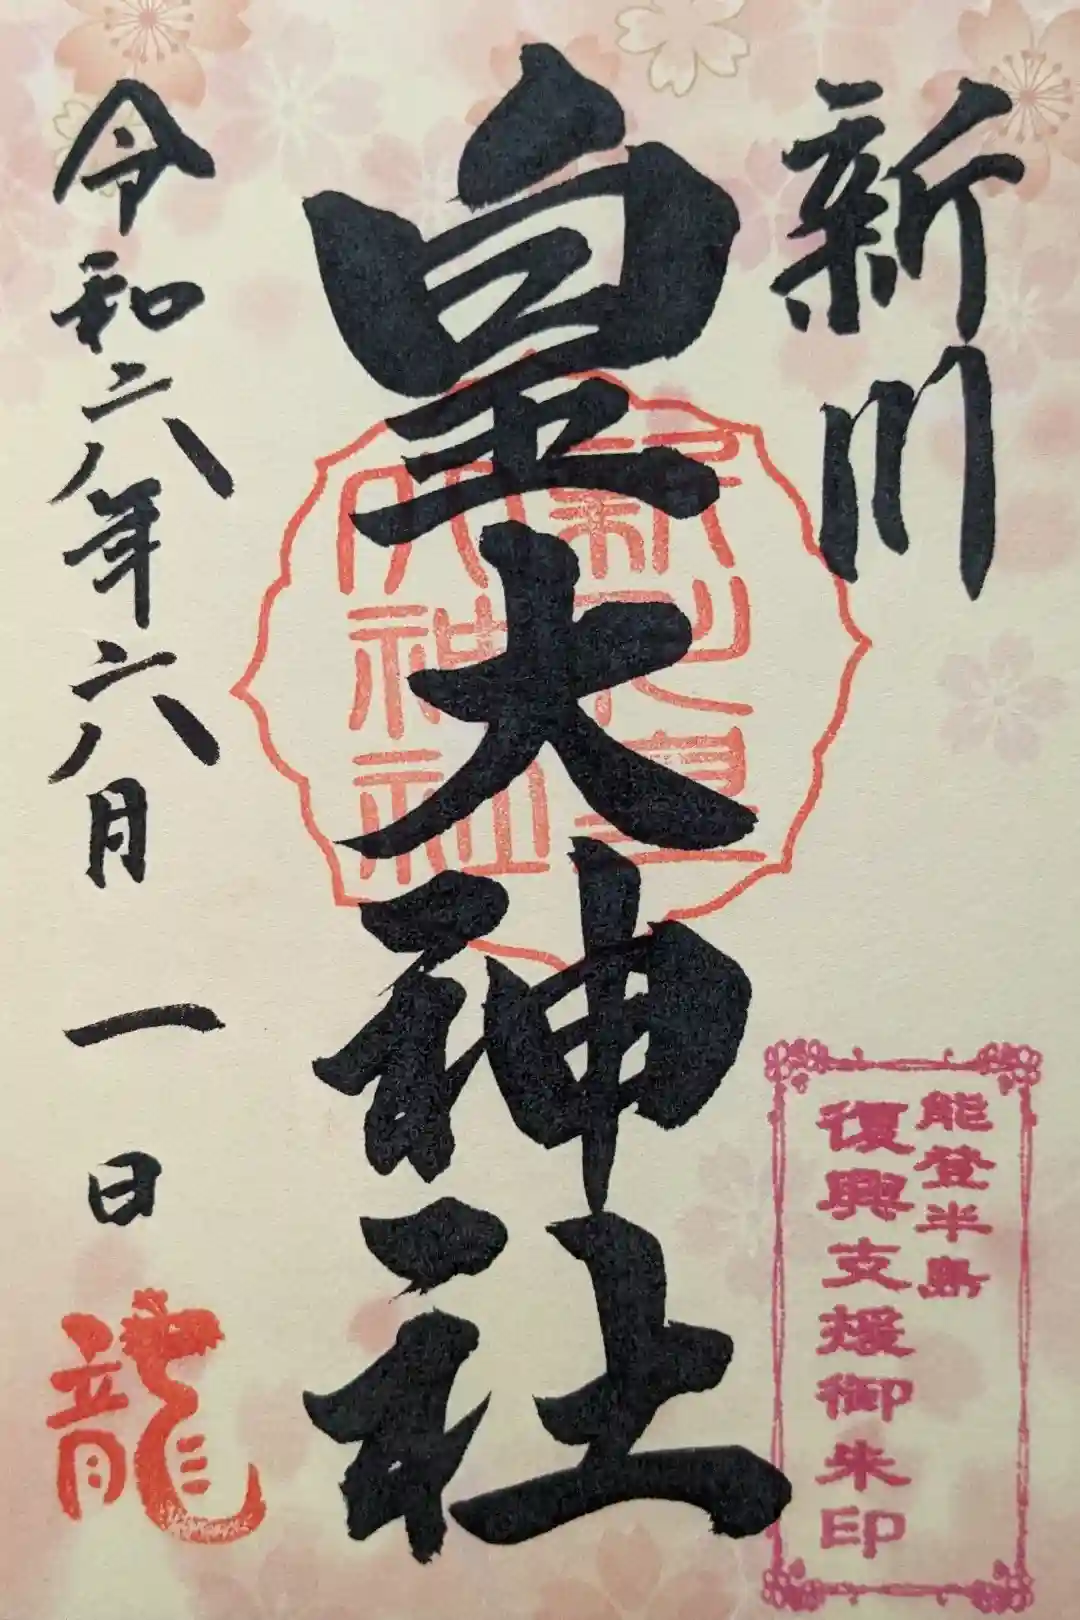 新川
皇大神社
令和六年六月一日
能登半島
復興支援御朱印
龍